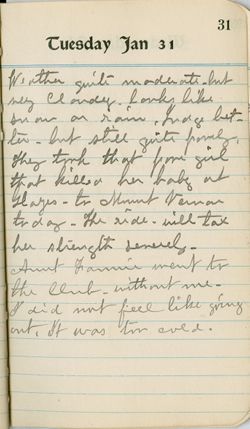 31
Tuesday Jan 31
Weather quite moderate - but
very Cloudy. Looks like
snow or rain. Judge bet-
ter - but still quite poorly.
They took that poor girl
that killed her baby at
to Mount Vernon
today - The ride - will tax
her strength severely -
Aunt Fannie went to
the Club - without me -
I did not feel like going
out. It was too cold.